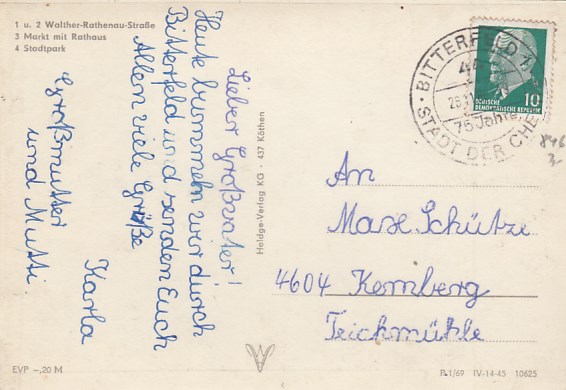 1 u. 2 Walther-Rathenau-Straße
3 Markt mit Rathaus
4 Stadtpark
Lieber Großvater!
Heute bummeln wir durch
Bitterfeld und senden Euch
Allen viele Grüße
Karla
Großmutter
und Mutti.
Heldge-Verlag KG · 437 Köthen
BITTERFELD 1
STADT DER CHE
75 Jahre
DEUTSCHE
DEMOKRATISCHE REPUBLIK
10
An
Max Schütze
4604 Kemberg
Teichmühle
EVP –,20 M
R 1/69 IV-14-45 10625